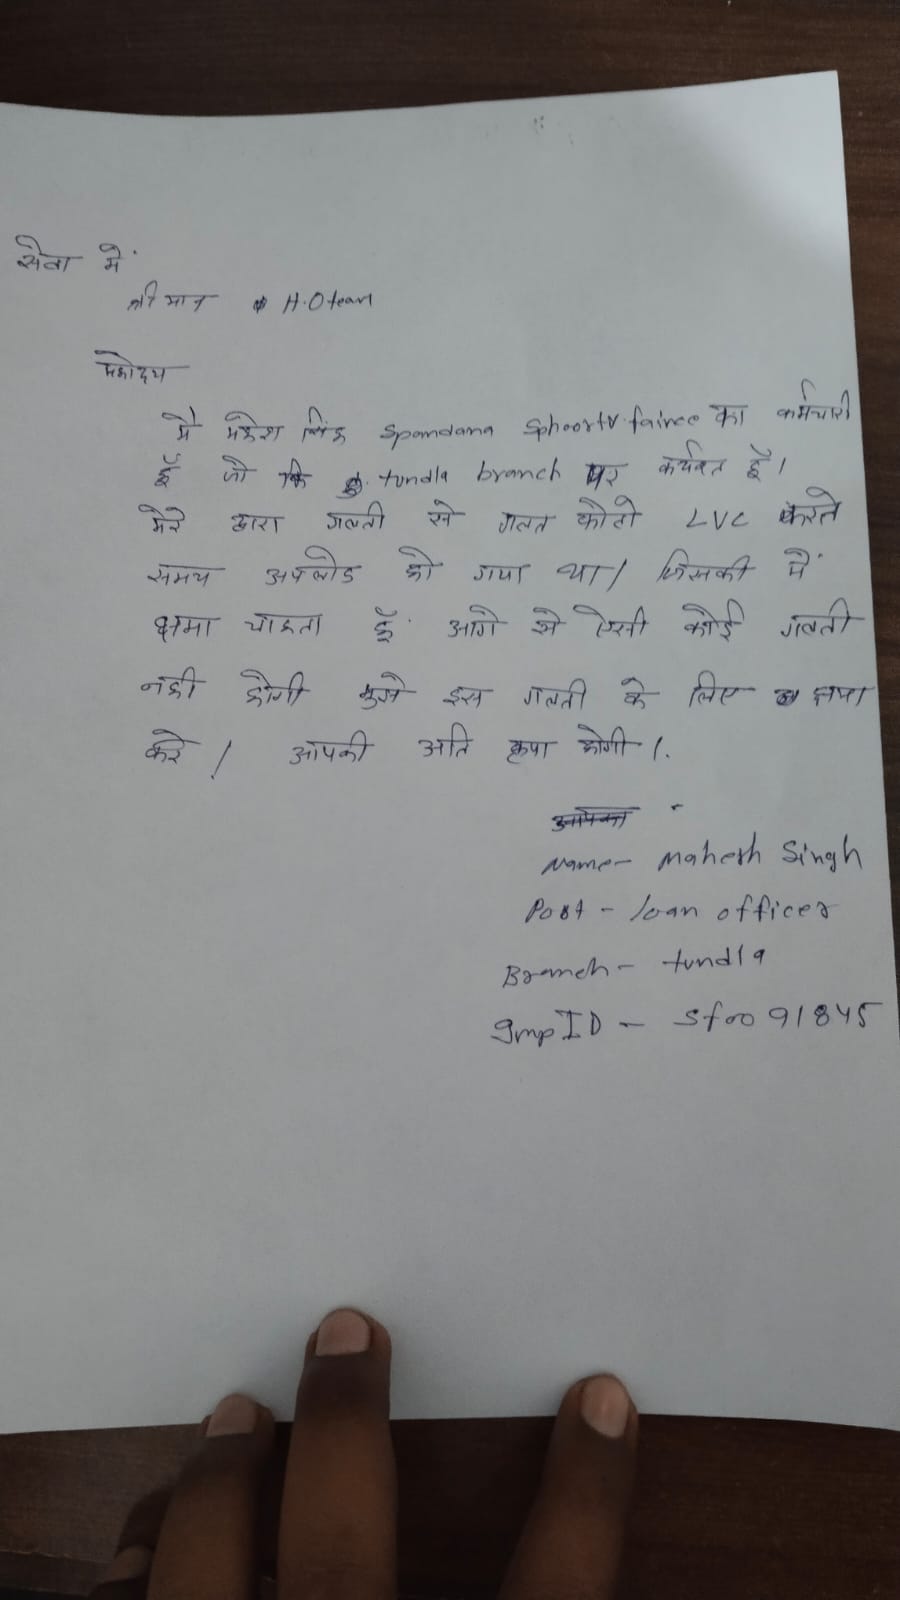 सेवा में
श्री मान H.O team
महोदय
मै महेश सिंह Spandana Sphoorty fainee का कर्मचारी
हूँ जो कि tundla branch पर कर्यरत हूँ।
मेरे द्वारा गलती से गलत फोटो LVC करते
समय अपलोड हो गया था। जिसकी मैं
क्षमा चाहता हूँ. आगे से ऐसी कोई गलती
नही होगी मुझे इस गलती के लिए क्षमा
करे। आपकी अति कृपा होगी।.
Name- Mahesh Singh
Post - loan officer
Branch - tundla
EmpID - Sf0091845